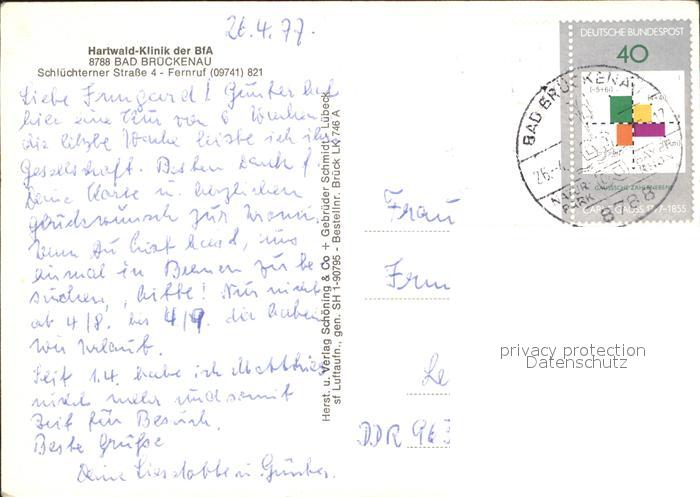 26.4.77.
Hartwald-Klinik der BfA
8788 BAD BRÜCKENAU
Schlüchterner Straße 4 - Fernruf (09741) 821
Liebe Irmgard! Günter hat
hier eine Kur von 6 Wochen
die letzte Woche leiste ich ihm
Gesellschaft. Besten Dank f.
Deine Karte u. herzlichen
Glückwunsch zur
Wenn Du Lust hast, uns
einmal in Bremen zu be
suchen, bitte! Nur nicht
ab 4/8. bis 4/9. da haben
wir Urlaub.
Seit 1.4. habe ich
nicht mehr und somit
Zeit für Besuch.
Beste Grüße
Deine Liselotte u. Günter.
Herst. u. Verlag Schöning & Co + Gebrüder Schmidt - Lübeck
sf Luftaufn., gen. SH 1-90795 - Bestellnr. Brück LK 746 A
DEUTSCHE BUNDESPOST
40
(-5+6i)
GAUSSSCHE ZAHLENEBENE
CARL F. GAUSS 1777-1855
BAD BRÜCKENAU
26.-4.
NATUR
PARK
8788
Frau
Irm
Le
DDR 963
privacy protection
Datenschutz